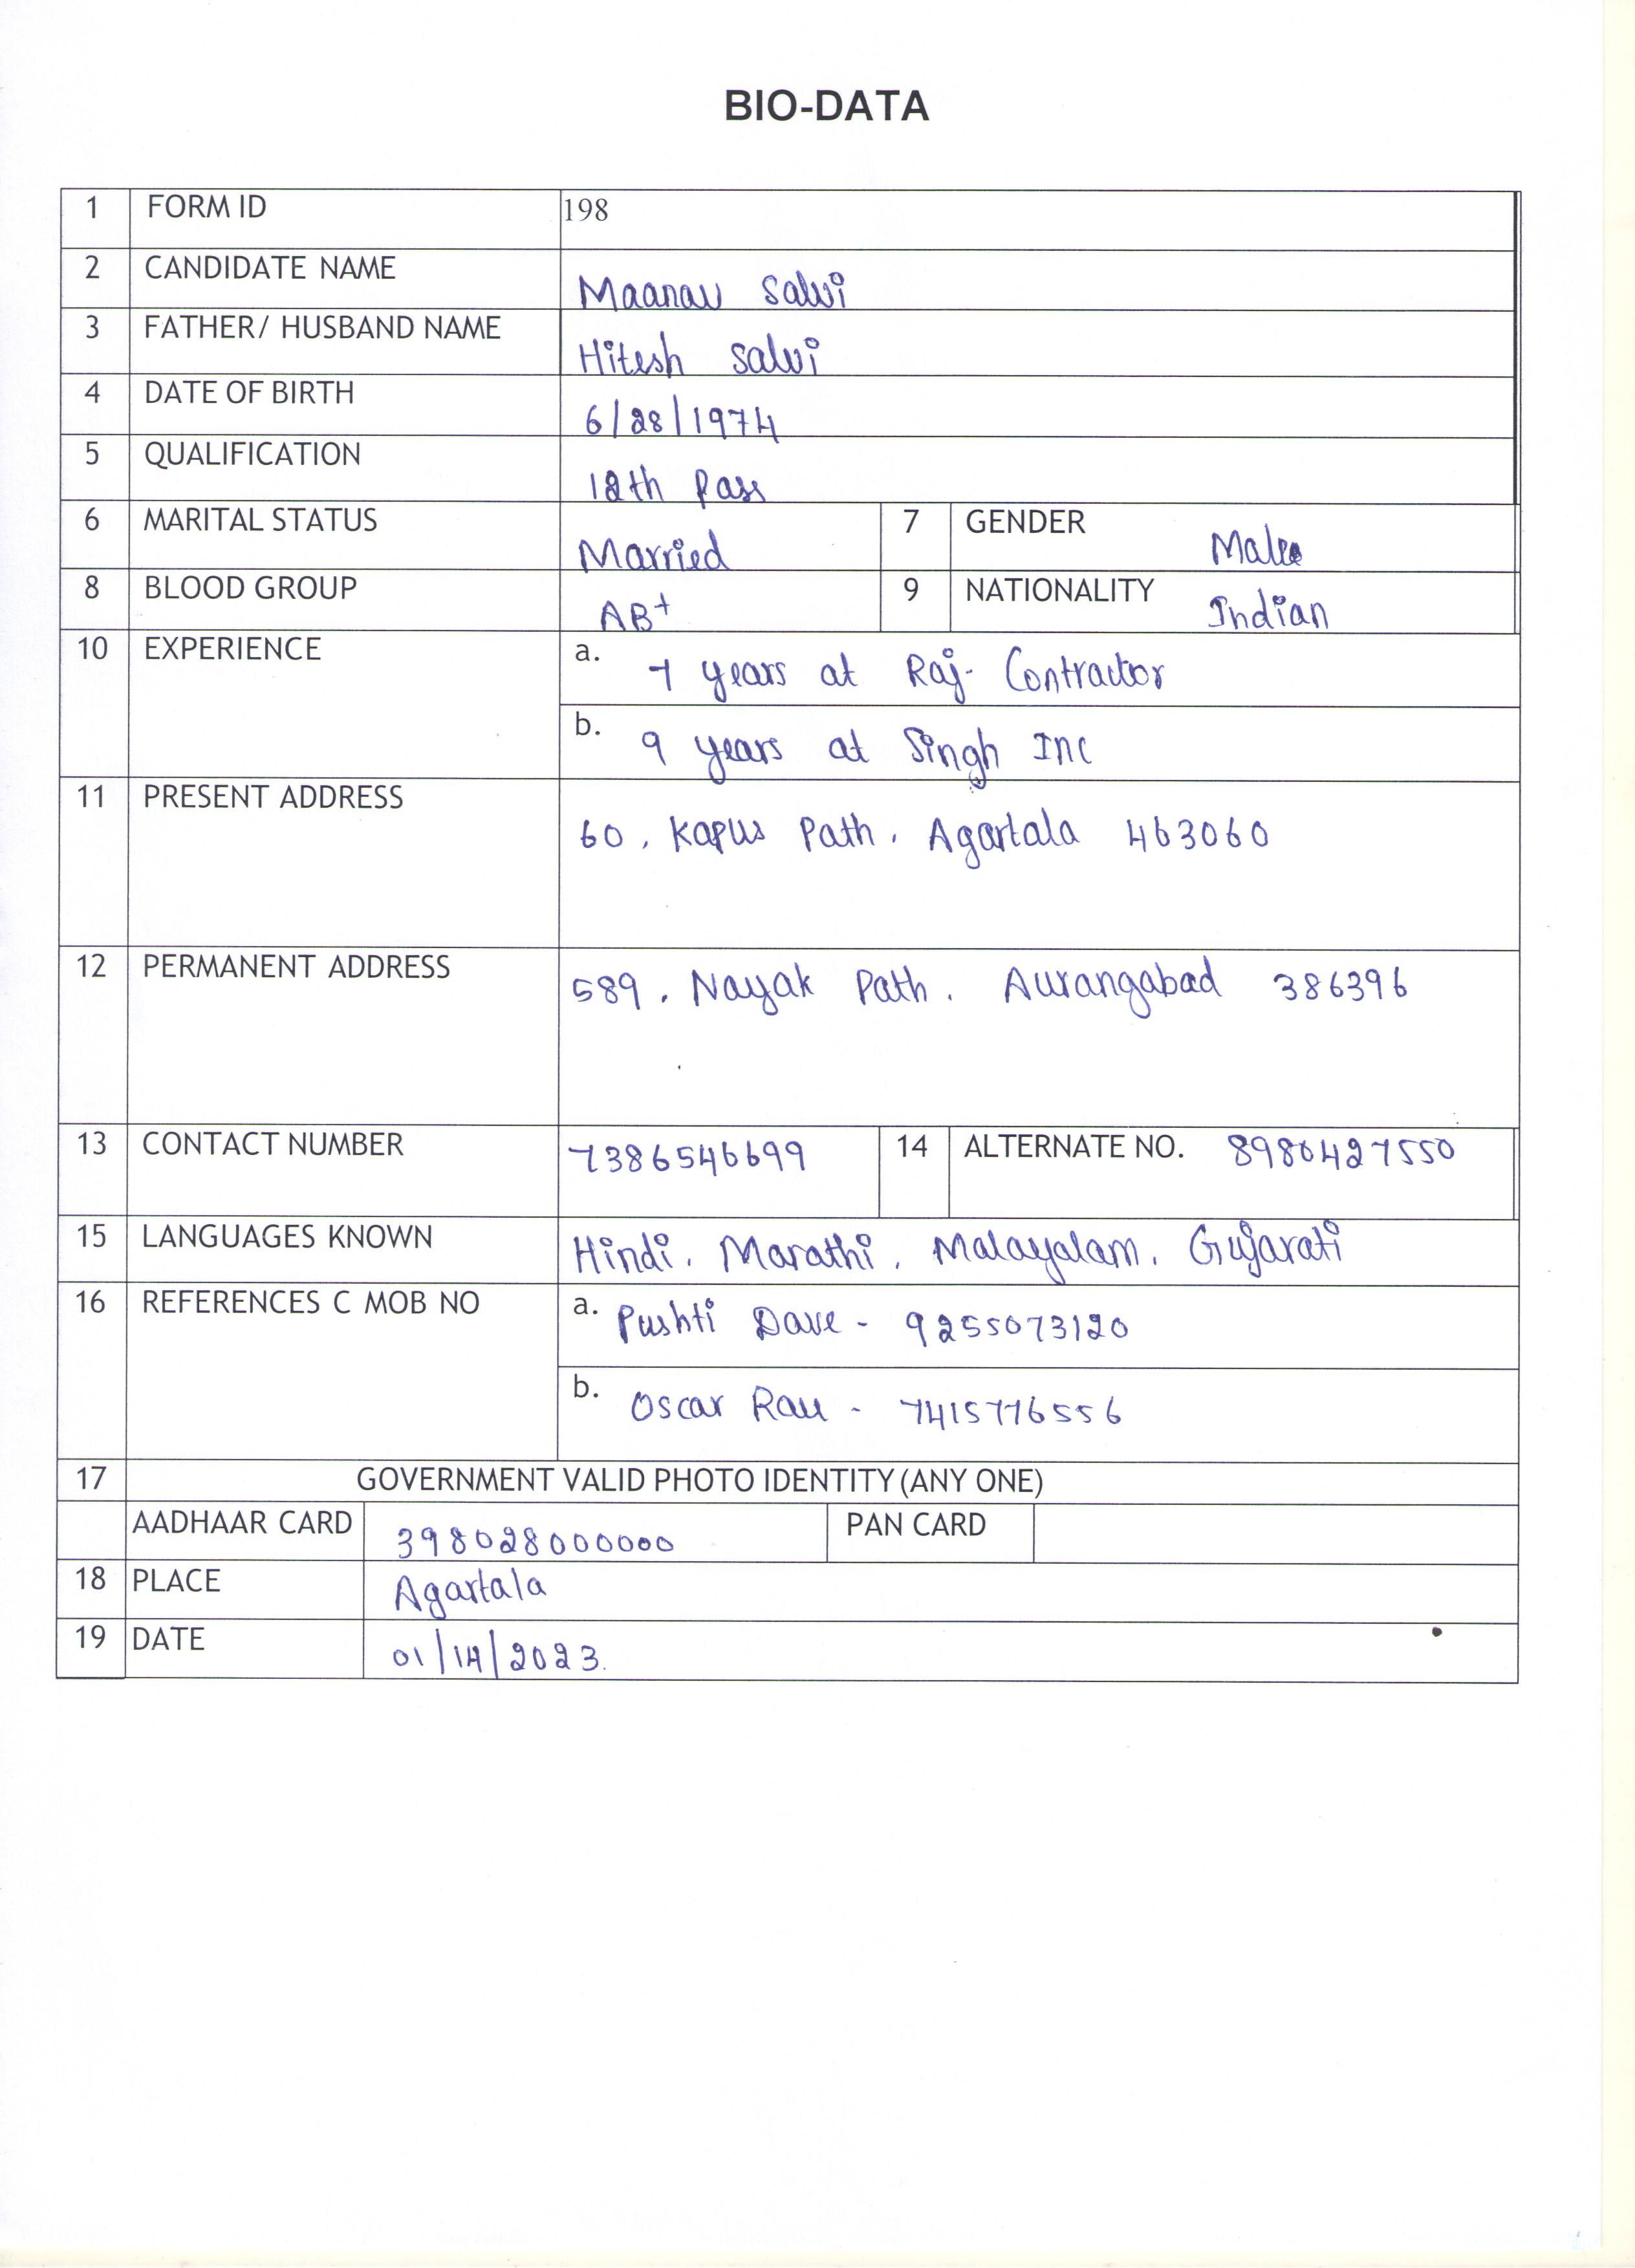 BIO-DATA
1 FORM ID 198
2 CANDIDATE NAME Maanav Salvi
3 FATHER/ HUSBAND NAME Hitesh Salvi
4 DATE OF BIRTH 6/28/1974
5 QUALIFICATION 12th Pass
6 MARITAL STATUS Married 7 GENDER Male
8 BLOOD GROUP AB+ 9 NATIONALITY Indian
10 EXPERIENCE a. 7 years at Raj- Contractor
b. 9 years at Singh Inc
11 PRESENT ADDRESS 60, Kapus Path, Agartala 463060
12 PERMANENT ADDRESS 589, Nayak Path, Aurangabad 386396
13 CONTACT NUMBER 7386546699 14 ALTERNATE NO. 8980427550
15 LANGUAGES KNOWN Hindi, Marathi, Malayalam, Gujarati
16 REFERENCES C MOB NO a. Pushti Dave - 9255073120
b. Oscar Rau - 7415776556
17 GOVERNMENT VALID PHOTO IDENTITY (ANY ONE)
AADHAAR CARD 398028000000 PAN CARD
18 PLACE Agartala
19 DATE 01/14/2023.